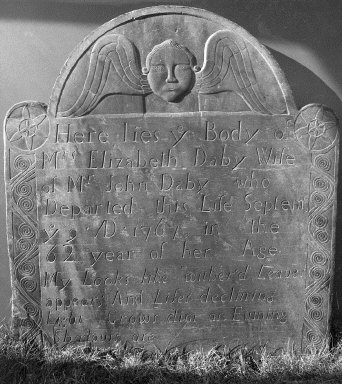 Here lies yͤ Body of
Mʳˢ Elizabeth Daby Wife
of Mʳ John Daby who
Departed this Life Septem
Day 176 in the
62 year of her Age
My Looks like
appears And Life's declining
Light Grows dim as Evening
Shadows are